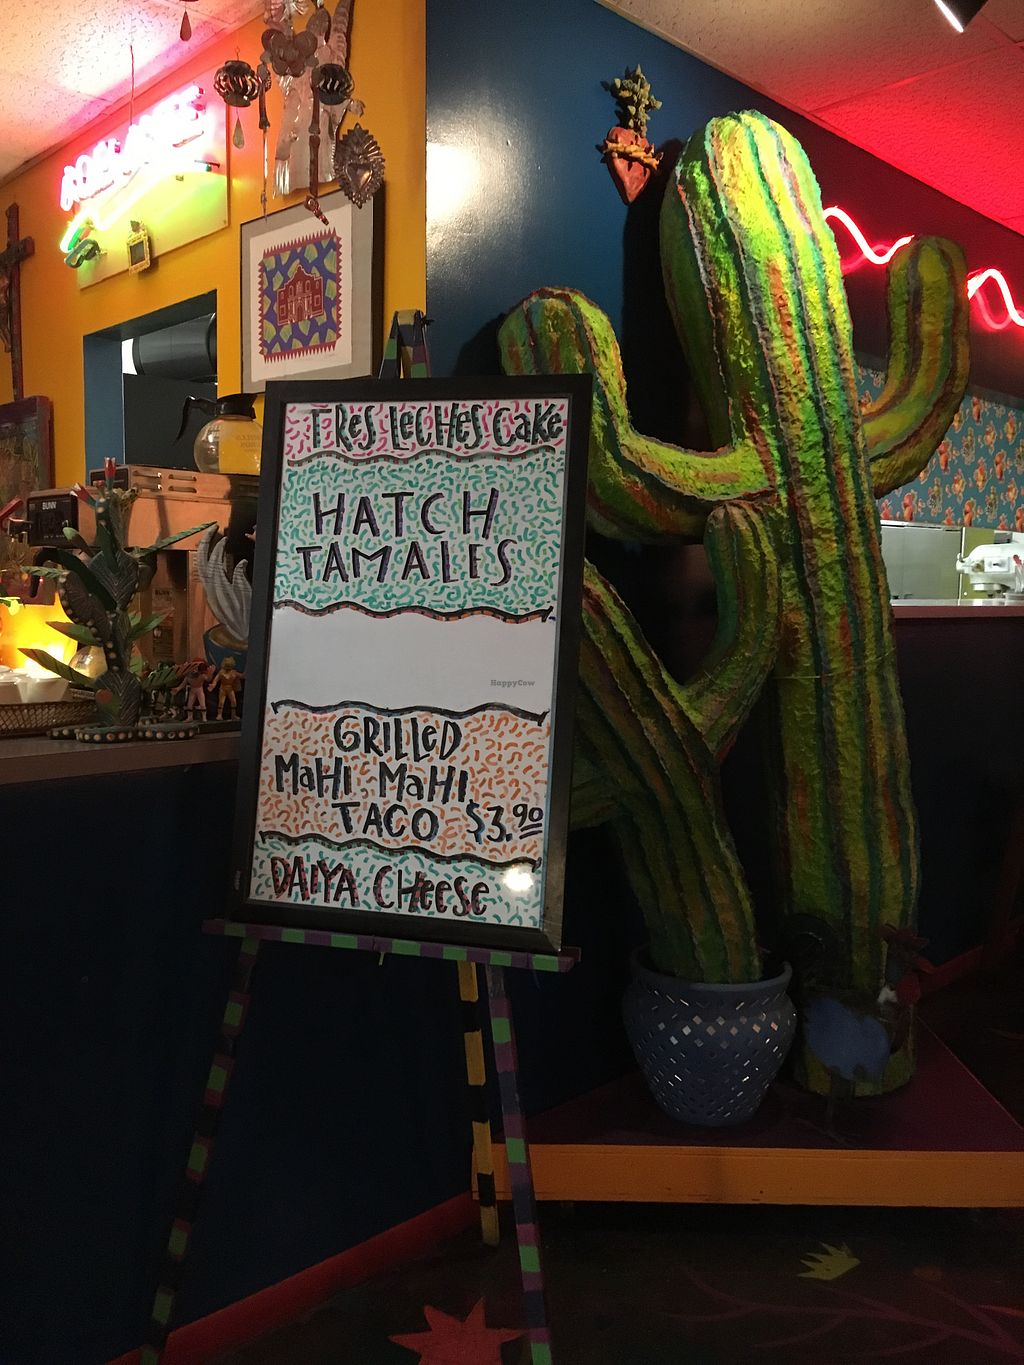 TRes LeCHes CaKe
HATCH
TAMALES
HappyCow
GRILLeD
MaHI MaHI
TACO $3.90
DAIYA CHeese
BUNN
BUNN